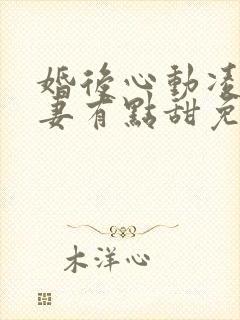 婚後心動凌
妻有點甜免
木洋心